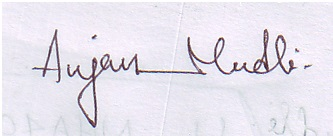 Anjan Mudli.